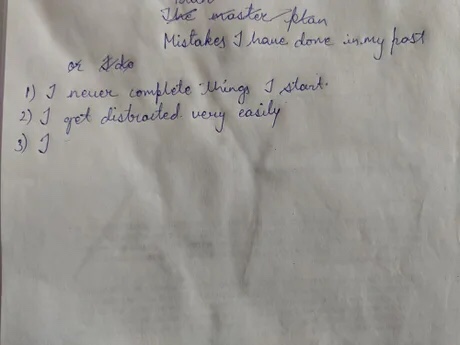 The master plan
Mistakes I have done in my past
or I do
1) I never complete things I start.
2) I get distraited very easily
3) I